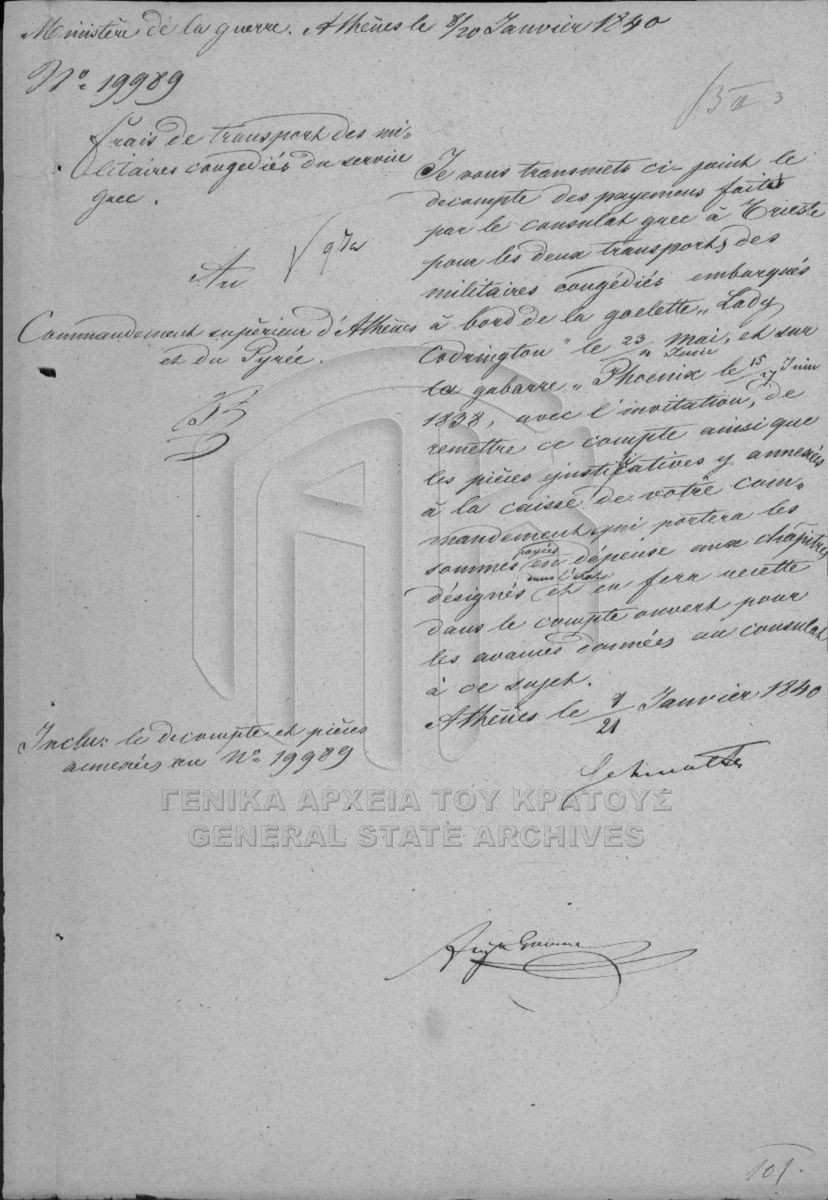 Ministère de la guerre. Athènes le 8/20 Janvier 1840
No. 19989
frais de transport des mi-
litaires congediés du service
grec.
Au
Commandement supèrieur d'Athènes
et du Pyrée.
Je vous transmets ci-joint le
decompte des payemens faits
par le consulat grec à Trieste
pour les deux transports des
militaires congédiés embarqués
à bord de la goelette „Lady
Codrington" le 23 Mai, et sur
la gabarre „Phoenix le 15 Juin
1838, avec l'invitation, de
remettre ce compte ainsi que
les pièces justificatives y annexées
à la caisse de votre com-
mandement qui portera les
sommes payées en dépense aux chapitres
désignés dans l'état et en fera recette
dans le compte ouvert pour
les avances données au consulat
à ce sujet.
Athènes le 21 Janvier 1840
Inclu: le decompte et pièces
annexées au No. 19989
Schmaltz
ΓΕΝΙΚΑ ΑΡΧΕΙΑ ΤΟΥ ΚΡΑΤΟΥΣ
GENERAL STATE ARCHIVES
101.